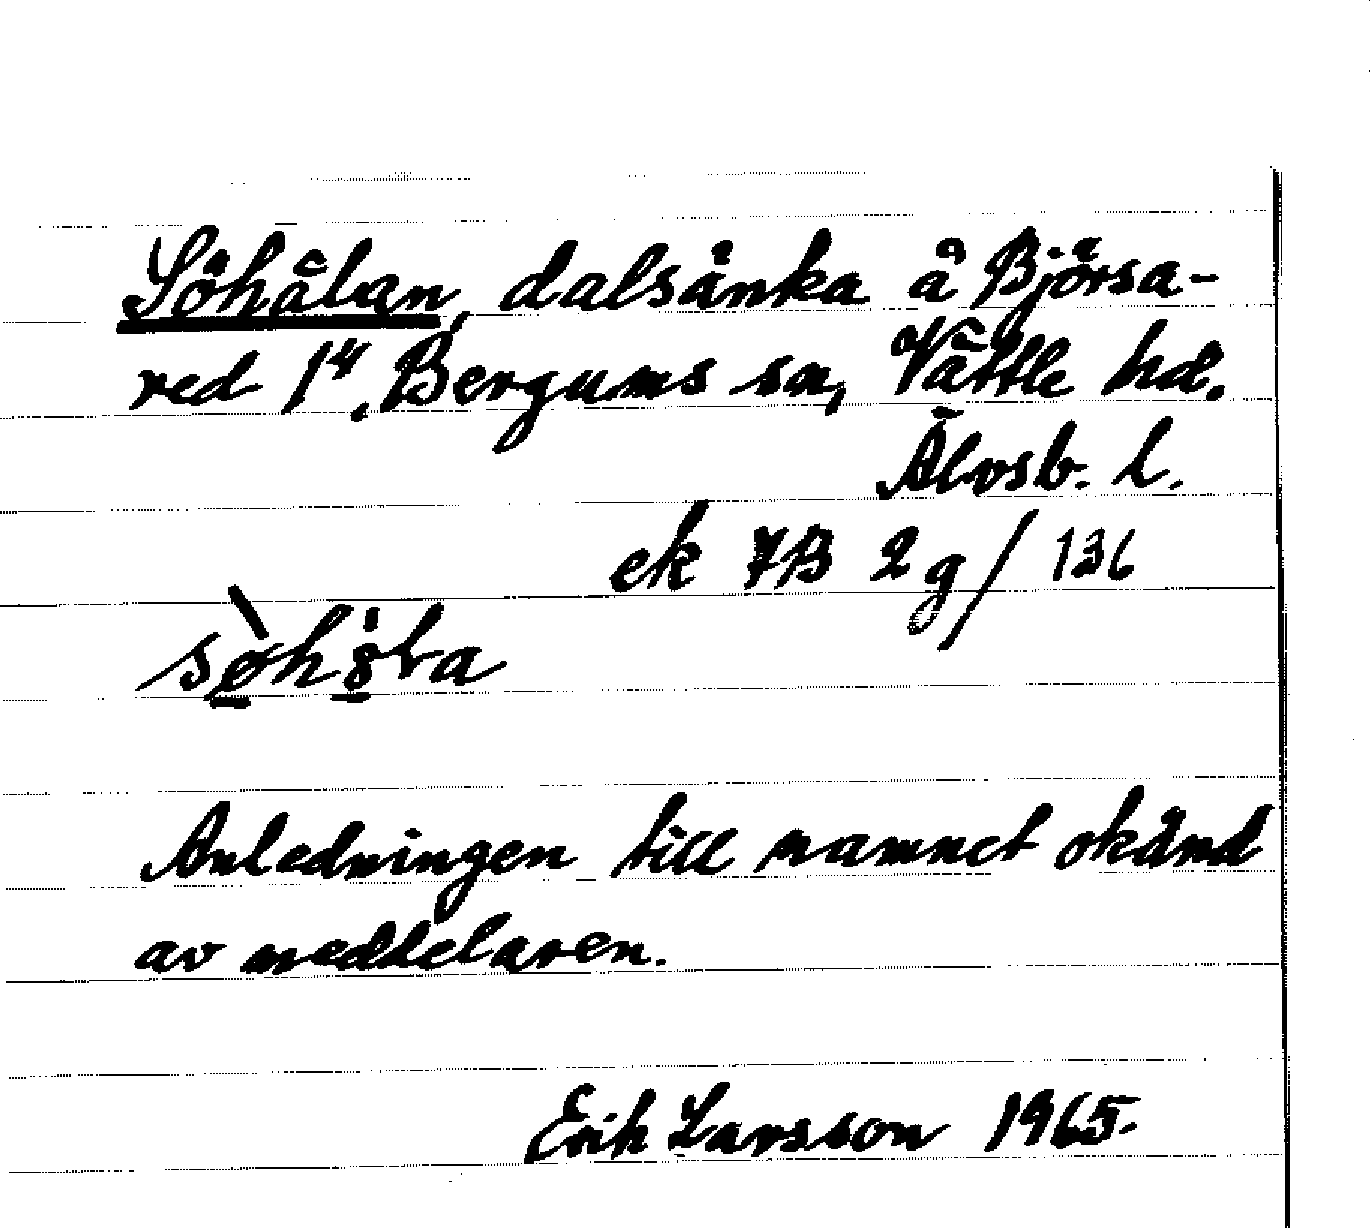 Söhålan, dalsänka å Björsa-
red 1⁴, Bergums sn, Vättle hd.
Älvsb. l.
ek 7B 2g/136
Anledningen till namnet okänd
av meddelaren.
Erik Larsson 1965.